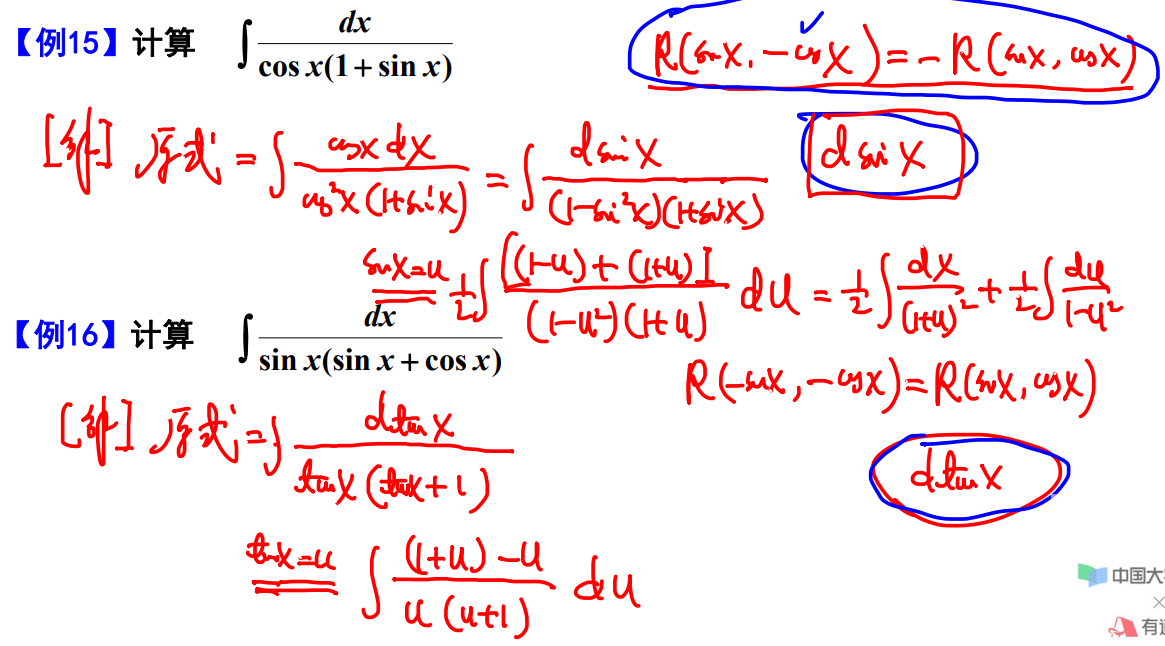 【例15】计算 ∫ dx / cos x(1 + sin x)
R(sinx, -cosx) = -R(sinx, cosx)
[解] 原式 = ∫ cosx dx / cos²x(1+sinx) = ∫ dsinx / (1-sin²x)(1+sinx)
dsinx
sinx=u 1/2 ∫ [(1-u)+(1+u)] / (1-u²)(1+u) du = 1/2 ∫ dx / (1+u)² + 1/2 ∫ du / 1-u²
【例16】计算 ∫ dx / sin x(sin x + cos x)
R(-sinx, -cosx) = R(sinx, cosx)
[解] 原式 = ∫ dtanx / tanx(tanx+1)
dtanx
tanx=u ∫ (1+u)-u / u(u+1) du
中国大
有道